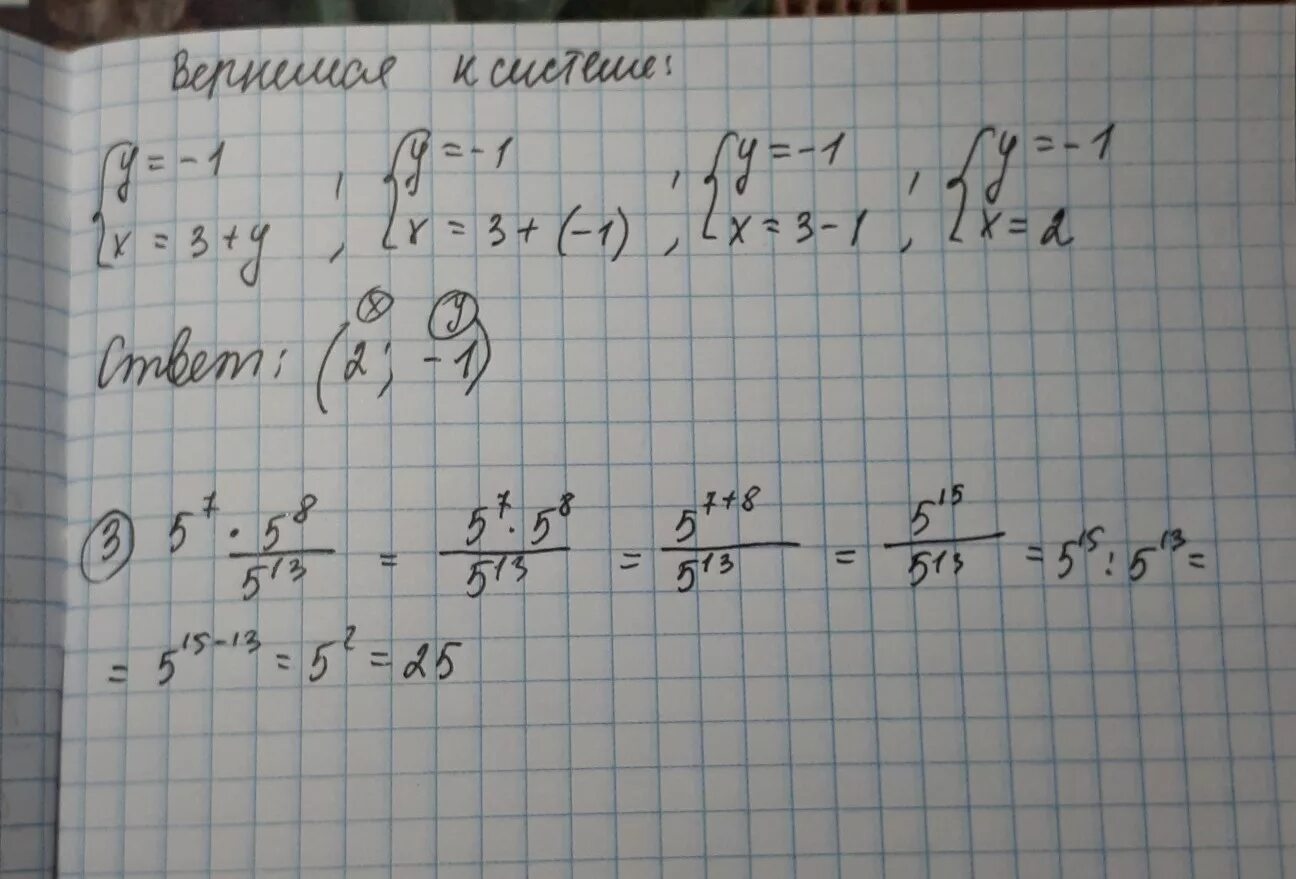 Вернемся к системе:
{y = -1 , {y = -1 , {y = -1 , {y = -1
{x = 3 + y , {x = 3 + (-1) , {x = 3 - 1 , {x = 2
x y
Ответ: (2; -1)
3 5⁷ · 5⁸/5¹³ = 5⁷ · 5⁸/5¹³ = 5⁷⁺⁸/5¹³ = 5¹⁵/5¹³ = 5¹⁵ : 5¹³ =
= 5¹⁵⁻¹³ = 5² = 25